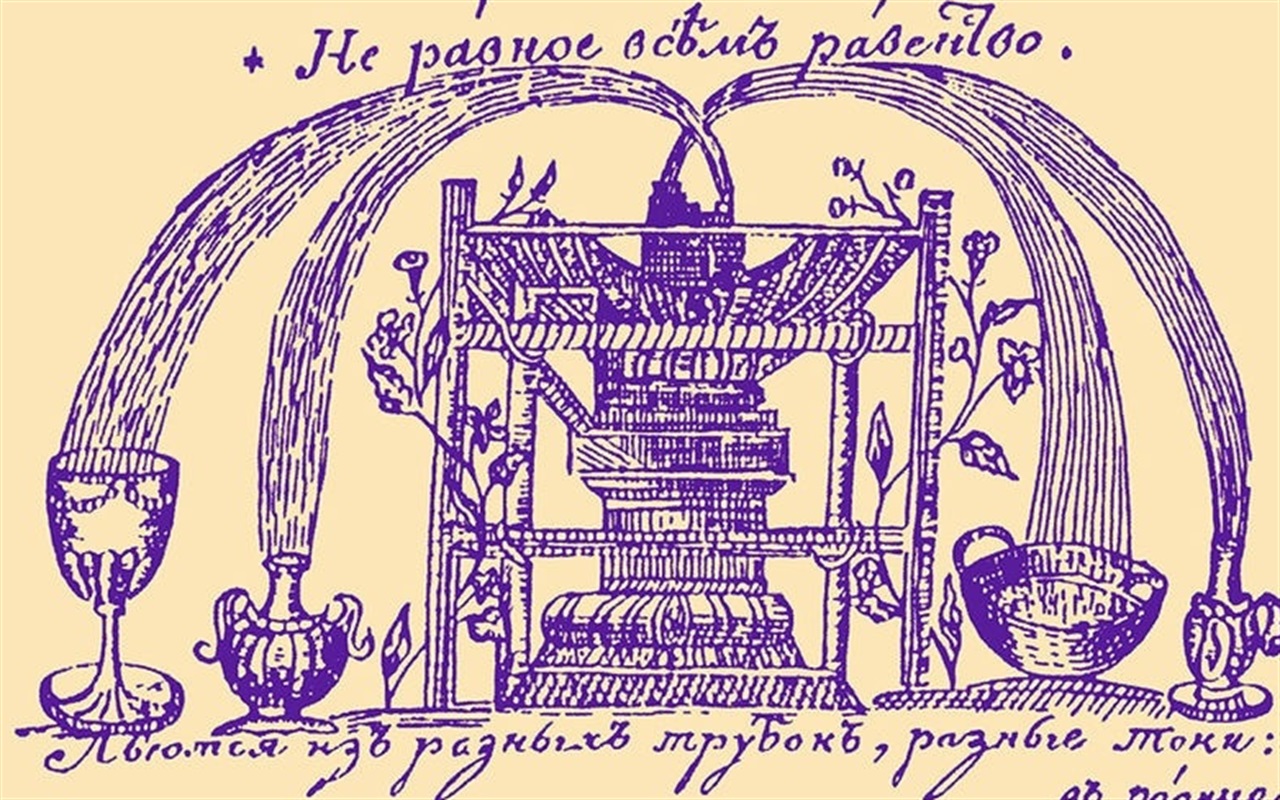 * Не равное всѣмъ равенство.
Льются изъ разныхъ трубокъ, разные токи:
въ разные